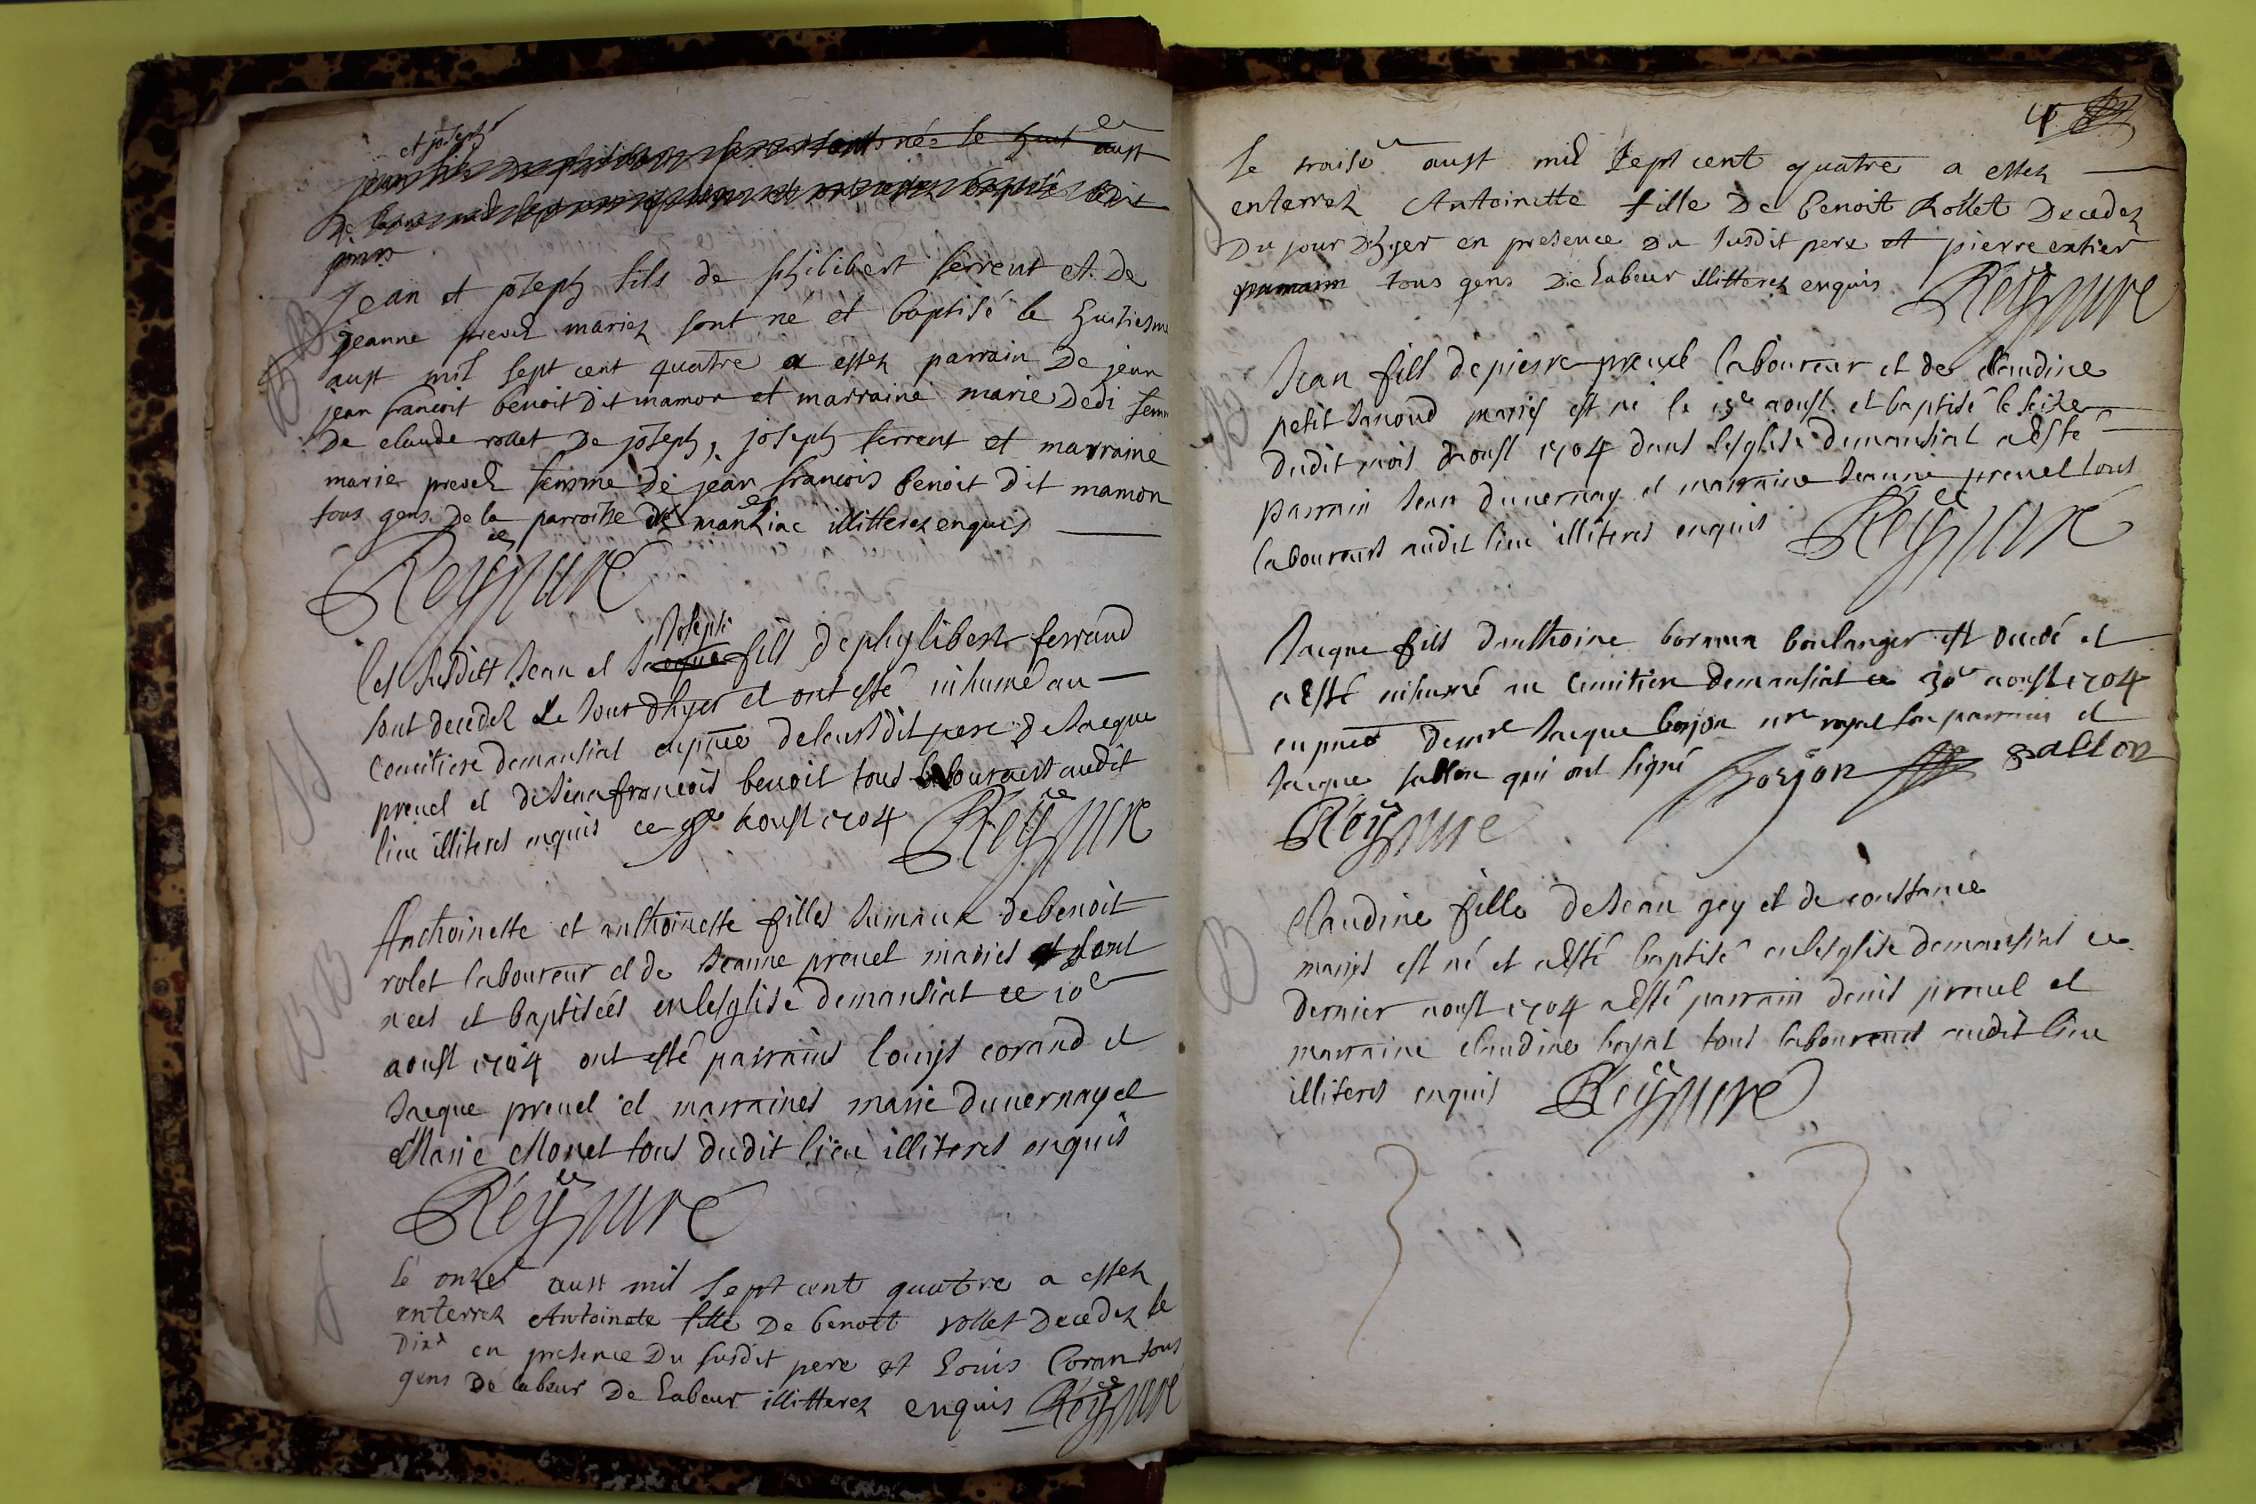 et joseph
jean fils de philibert ferrent sont nés le huit aust
jours
jean et joseph fils de philibert ferrent et De
jeanne prevel mariez sont né et baptisé le huitiesme
aust mil sept cent quatre a estez parrain De jean
jean francoit benoit Dit mamon et marraine marie Dedi femme
De claude rollet De joseph, joseph ferrent et marraine
marie prevel femme de jean francois benoit Dit mamon
tous gens De la parroisse De manziac illitterez enquis
Reyssure
Joseph
Les susdits Jean et Jacque fils de phylibert ferrand
sont decedez le jour dhyer et ont esté inhumé au
cemitiere demansiat en pnce de leursdit pere de Jacque
prevel et de Jean francois benoit tous laboureurs audit
lieu illiterés enquis ce 9e Aoust 1704 Reyssure
Anthoinette et anthoinette filles Jumaux de benoit
rolet laboureur et de Jeanne prevel mariés et sont
nees et baptisées en lesglise demansiat ce 10e
aoust 1704 ont esté parrains louys corand et
Jacque prevel et marraines marie duvernay et
Marie Monet tous dudit lieu illiterés enquis
Reyssure
Le onze aust mil sept cent quatre a estez
enterrez Antoinete fille De benoit rollet Decedez le
Dixe en presence Du susdit pere et Louis Coran tous
gens De labeur De Labeur illitterez enquis Reyssure
4
le traise aust mil sept cent quatre a estez
enterrez Antoinette fille De benoit Rollet Decedez
Du jour Dhyer en presence Du susdit pere et pierre
tous gens De Labeur illitterez enquis Reyssure
Jean fils de pierre prevel laboureur et de Claudine
petit Janond mariés est né le 15e aoust et baptisé le seize
dudit mois daoust 1704 dans lesglise demansiat a esté
parrain Jean duvernay et marraine Jeanne prevel tous
laboureurs audit lieu illiterés enquis Reyssure
Jacque fils danthoine borjon boulanger est decedé et
a esté inhumé au cemitiere demansiat ce 30e aoust 1704
en pnce de me Jacque borjon nre royal son parrain et
Jacque sallon qui ont signé Borjon sallon
Reyssure
Claudine fille de Jean gey et de constance
mariés est né et a esté baptisé en lesglise demansiat ce
dernier aoust 1704 a esté parrain denis prevel et
marraine claudine boyat tous laboureurs audit lieu
illiterés enquis Reyssure